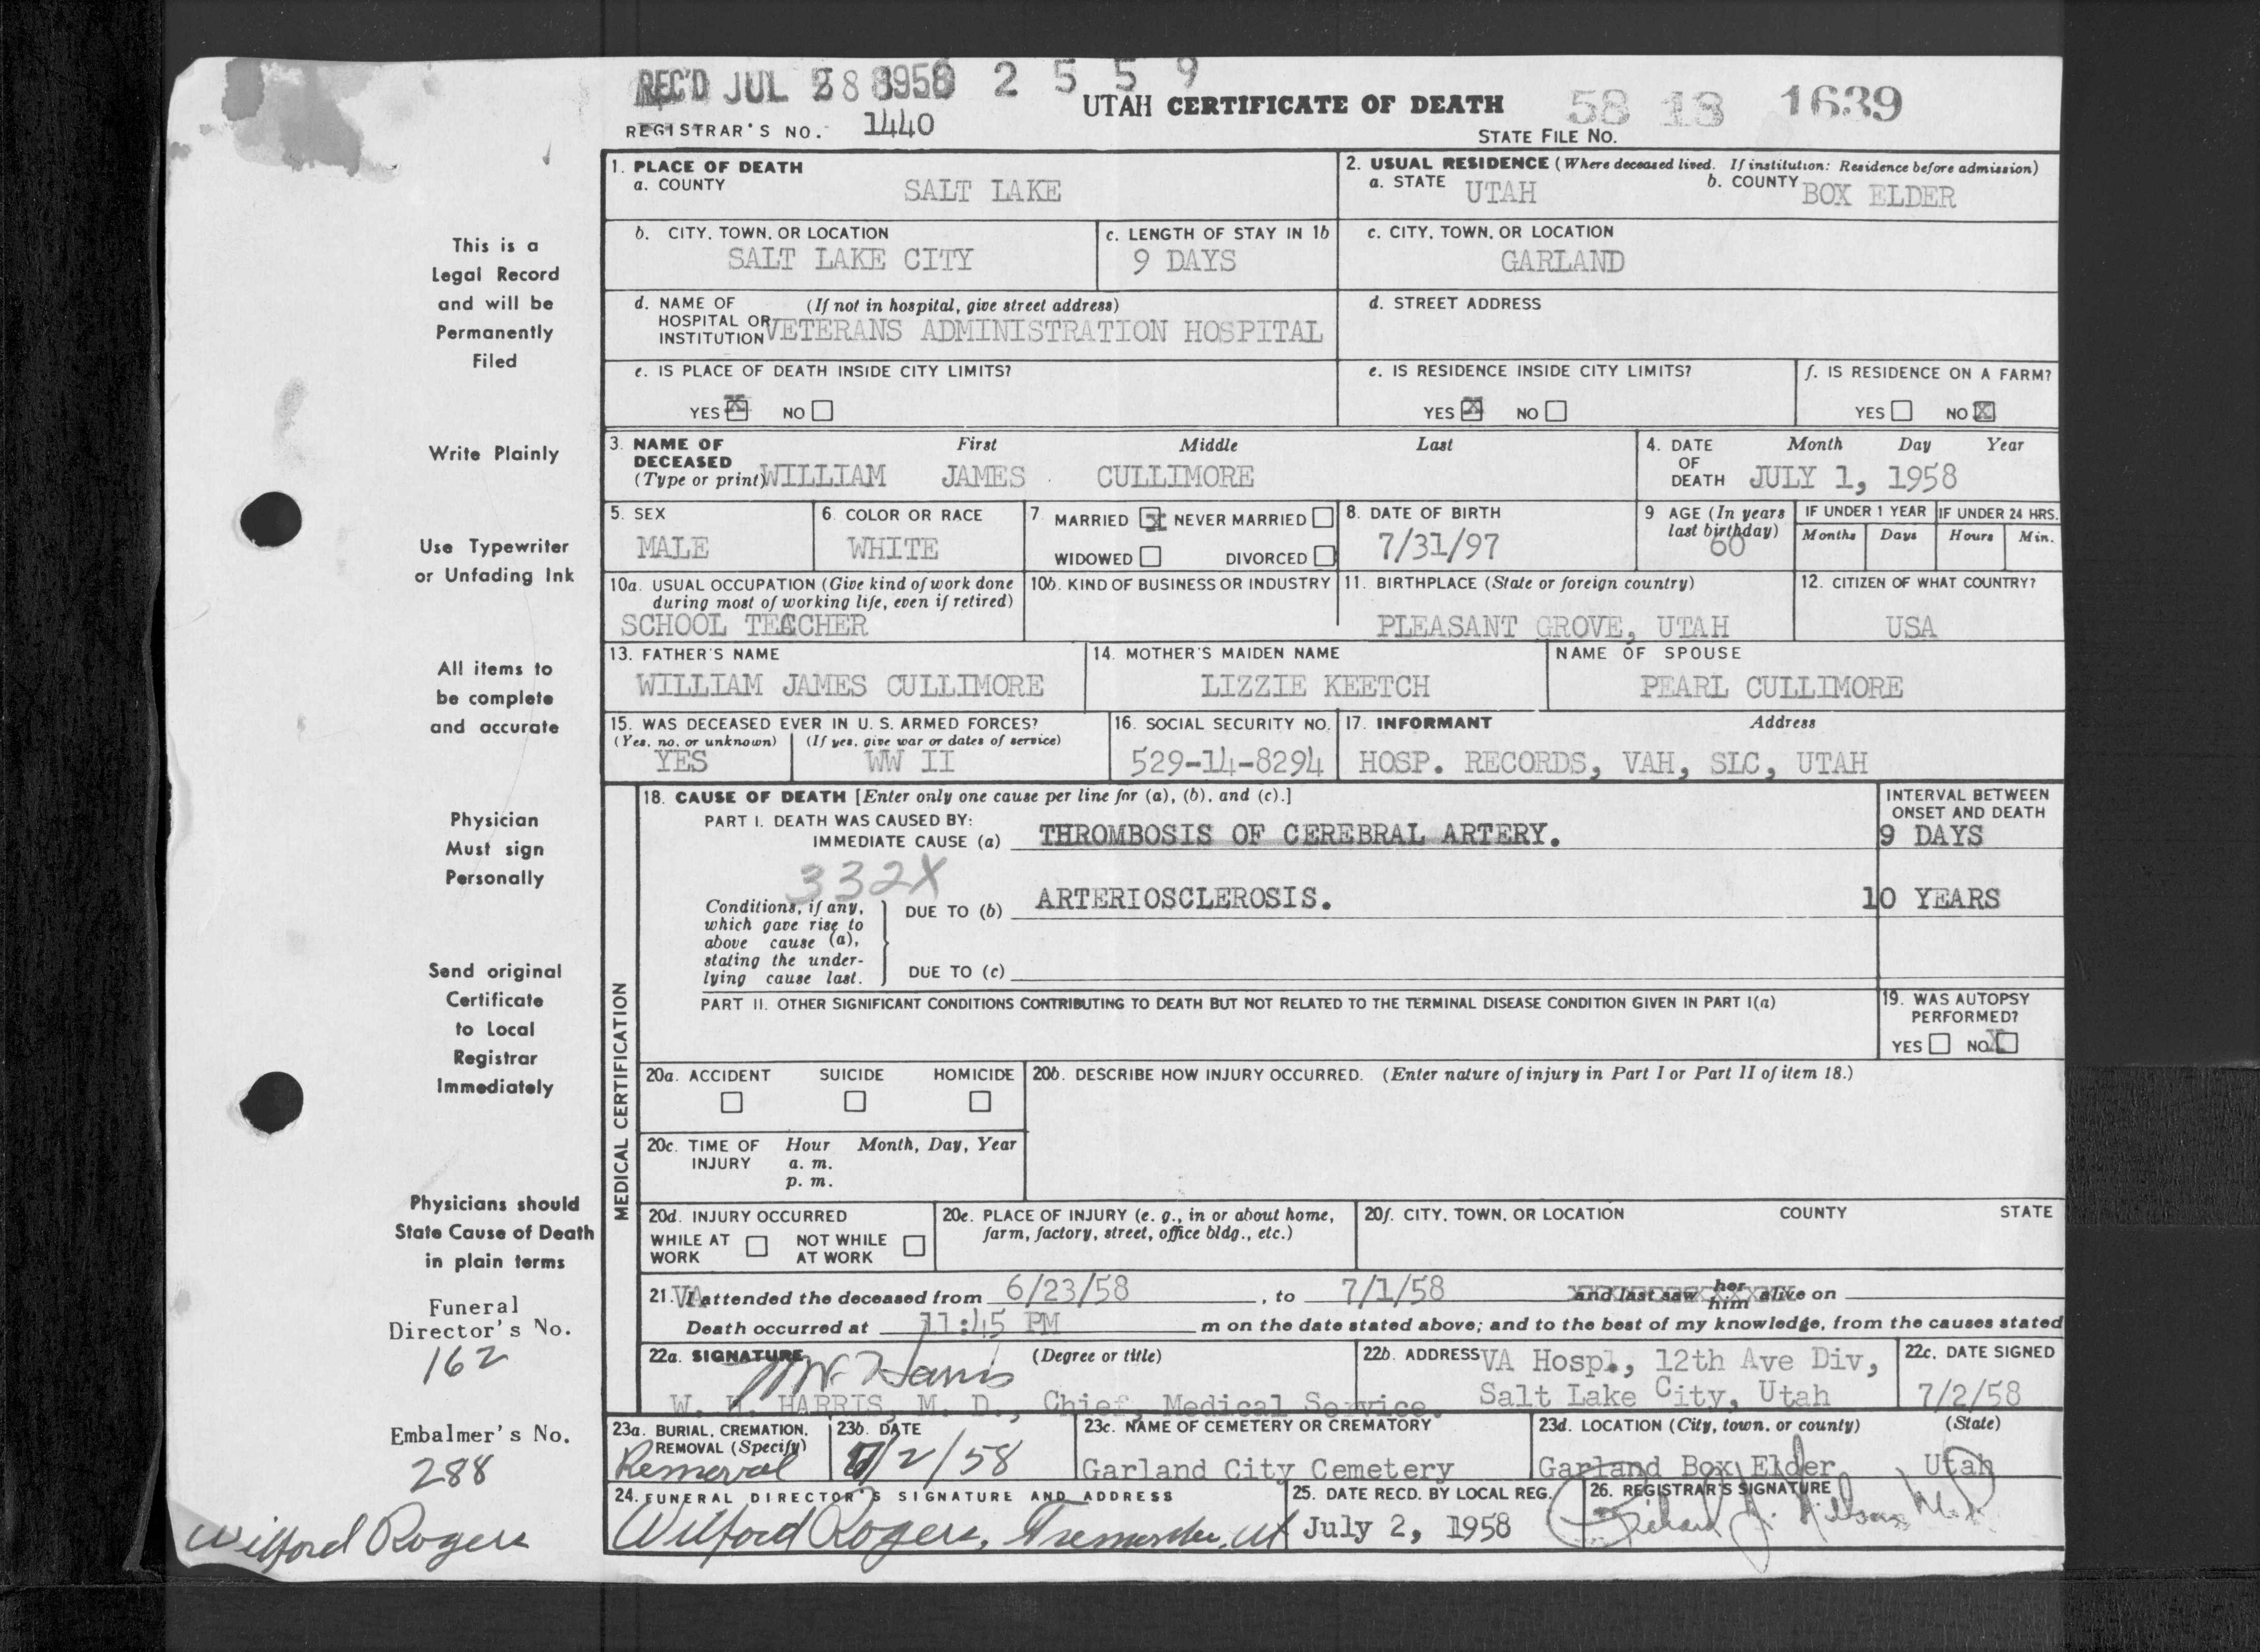 REC'D JUL 28 1958 2 5 5 9
UTAH CERTIFICATE OF DEATH
58 18 1639
REGISTRAR'S NO. 1440
STATE FILE NO.
1. PLACE OF DEATH
a. COUNTY SALT LAKE
2. USUAL RESIDENCE (Where deceased lived. If institution: Residence before admission)
a. STATE UTAH b. COUNTY BOX ELDER
b. CITY, TOWN, OR LOCATION SALT LAKE CITY
c. LENGTH OF STAY IN 1b 9 DAYS
c. CITY, TOWN, OR LOCATION GARLAND
d. NAME OF HOSPITAL OR INSTITUTION (If not in hospital, give street address) VETERANS ADMINISTRATION HOSPITAL
d. STREET ADDRESS
e. IS PLACE OF DEATH INSIDE CITY LIMITS?
YES X NO
e. IS RESIDENCE INSIDE CITY LIMITS?
YES X NO
f. IS RESIDENCE ON A FARM?
YES NO X
3. NAME OF DECEASED (Type or print) First Middle Last
WILLIAM JAMES CULLIMORE
4. DATE OF DEATH Month Day Year
JULY 1, 1958
5. SEX MALE
6. COLOR OR RACE WHITE
7. MARRIED X NEVER MARRIED
WIDOWED DIVORCED
8. DATE OF BIRTH 7/31/97
9 AGE (In years last birthday) 60
IF UNDER 1 YEAR Months Days
IF UNDER 24 HRS. Hours Min.
10a. USUAL OCCUPATION (Give kind of work done during most of working life, even if retired)
SCHOOL TEACHER
10b. KIND OF BUSINESS OR INDUSTRY
11. BIRTHPLACE (State or foreign country)
PLEASANT GROVE, UTAH
12. CITIZEN OF WHAT COUNTRY?
USA
13. FATHER'S NAME
WILLIAM JAMES CULLIMORE
14. MOTHER'S MAIDEN NAME
LIZZIE KEETCH
NAME OF SPOUSE
PEARL CULLIMORE
15. WAS DECEASED EVER IN U.S. ARMED FORCES?
(Yes, no, or unknown) (If yes, give war or dates of service)
YES WW II
16. SOCIAL SECURITY NO.
529-14-8294
17. INFORMANT Address
HOSP. RECORDS, VAH, SLC, UTAH
MEDICAL CERTIFICATION
18. CAUSE OF DEATH [Enter only one cause per line for (a), (b), and (c).]
PART I. DEATH WAS CAUSED BY:
IMMEDIATE CAUSE (a) THROMBOSIS OF CEREBRAL ARTERY.
INTERVAL BETWEEN ONSET AND DEATH
9 DAYS
332X
Conditions, if any, which gave rise to above cause (a), stating the underlying cause last.
DUE TO (b) ARTERIOSCLEROSIS. 10 YEARS
DUE TO (c)
PART II. OTHER SIGNIFICANT CONDITIONS CONTRIBUTING TO DEATH BUT NOT RELATED TO THE TERMINAL DISEASE CONDITION GIVEN IN PART I(a)
19. WAS AUTOPSY PERFORMED?
YES NO X
20a. ACCIDENT SUICIDE HOMICIDE
20b. DESCRIBE HOW INJURY OCCURRED. (Enter nature of injury in Part I or Part II of item 18.)
20c. TIME OF INJURY Hour Month, Day, Year
a. m.
p. m.
20d. INJURY OCCURRED
WHILE AT WORK NOT WHILE AT WORK
20e. PLACE OF INJURY (e. g., in or about home, farm, factory, street, office bldg., etc.)
20f. CITY, TOWN, OR LOCATION COUNTY STATE
21. VA attended the deceased from 6/23/58, to 7/1/58 and last saw her him alive on
Death occurred at 11:45 PM m on the date stated above; and to the best of my knowledge, from the causes stated
22a. SIGNATURE (Degree or title)
W H Harris
W. H. HARRIS, M. D., Chief, Medical Service.
22b. ADDRESS VA Hospl., 12th Ave Div,
Salt Lake City, Utah
22c. DATE SIGNED
7/2/58
23a. BURIAL, CREMATION, REMOVAL (Specify)
Removal
23b. DATE
7/2/58
23c. NAME OF CEMETERY OR CREMATORY
Garland City Cemetery
23d. LOCATION (City, town, or county) (State)
Garland Box Elder Utah
24. FUNERAL DIRECTOR'S SIGNATURE AND ADDRESS
Wilford Rogers, Tremonton, Ut
25. DATE RECD. BY LOCAL REG.
July 2, 1958
26. REGISTRAR'S SIGNATURE
This is a
Legal Record
and will be
Permanently
Filed
Write Plainly
Use Typewriter
or Unfading Ink
All items to
be complete
and accurate
Physician
Must sign
Personally
Send original
Certificate
to Local
Registrar
Immediately
Physicians should
State Cause of Death
in plain terms
Funeral
Director's No.
162
Embalmer's No.
288
Wilford Rogers